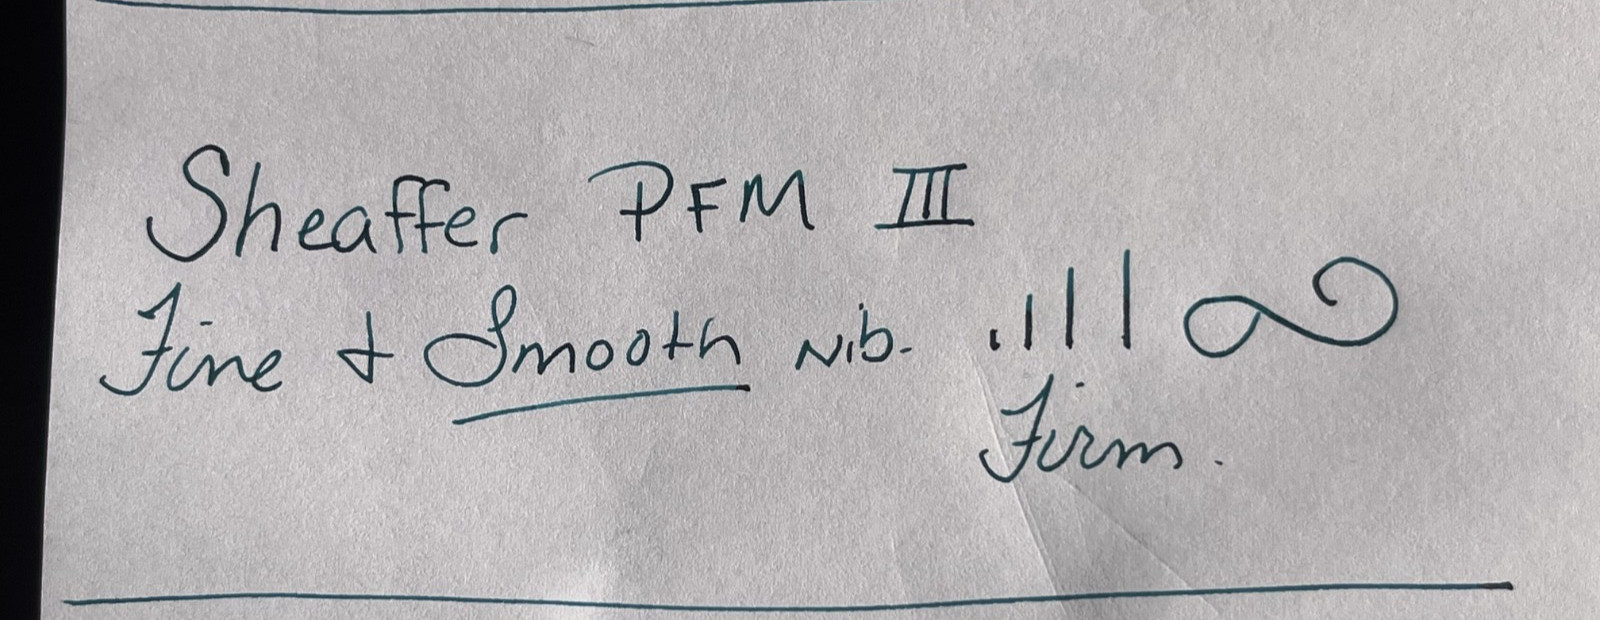 Sheaffer PFM III
Fine + Smooth Nib.
Firm.